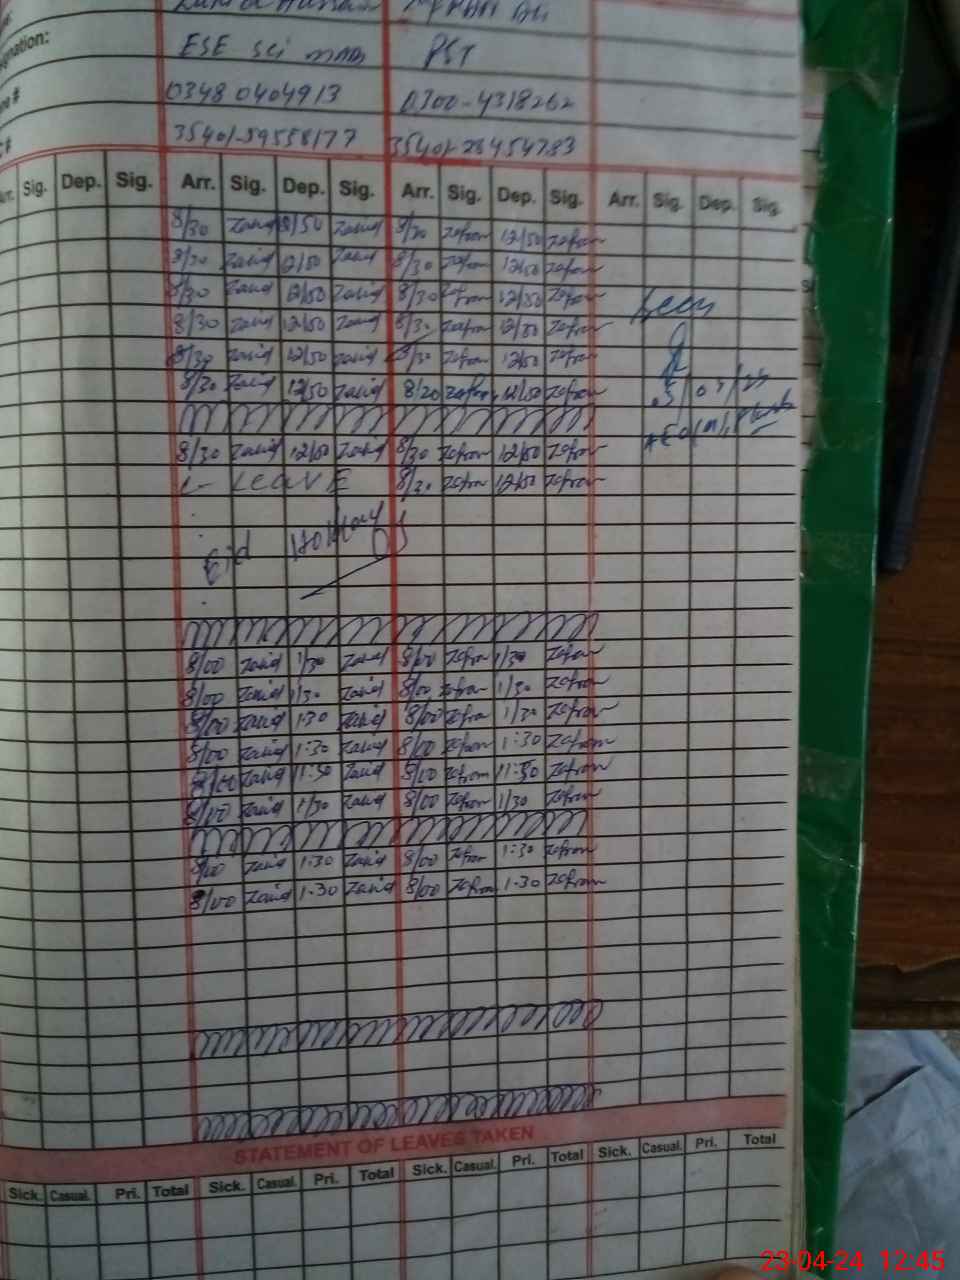 ignation:
ESE Sci PST
03480404913 0300-4318262
35401-59558177 35401-28454783
Arr. Sig. Dep. Sig. Arr. Sig. Dep. Sig. Arr. Sig. Dep. Sig. Arr. Sig. Dep. Sig.
8/30 Zavid 12/50 Zavid 8/30 Zafran 12/50 Zafran
8/30 Zavid 12/50 Zavid 8/30 Zafran 12/50 Zafran
8/30 Zavid 12/50 Zavid 8/30 Zafran 12/50 Zafran
8/30 Zavid 12/50 Zavid 8/30 Zafran 12/50 Zafran
8/30 Zavid 12/50 Zavid 8/30 Zafran 12/50 Zafran
8/30 Zavid 12/50 Zavid 8/20 Zafran 12/50 Zafran
8/30 Zavid 12/50 Zavid 8/30 Zafran 12/50 Zafran
LEAVE 8/30 Zafran 12/50 Zafran
Eid Holiday
8/00 Zavid 1/30 Zavid 8/00 Zafran 1/30 Zafran
8/00 Zavid 1/30 Zavid 8/00 Zafran 1/30 Zafran
8/00 Zavid 1:30 Zavid 8/00 Zafran 1/30 Zafran
8/00 Zavid 1:30 Zavid 8/00 Zafran 1:30 Zafran
8/00 Zavid 11:30 Zavid 8/00 Zafran 11:30 Zafran
8/00 Zavid 1/30 Zavid 8/00 Zafran 1/30 Zafran
8/00 Zavid 1:30 Zavid 8/00 Zafran 1:30 Zafran
8/00 Zavid 1-30 Zavid 8/00 Zafran 1-30 Zafran
STATEMENT OF LEAVES TAKEN
Sick. Casual. Pri. Total Sick. Casual. Pri. Total Sick. Casual. Pri. Total Sick. Casual. Pri. Total
23-04-24 12:45